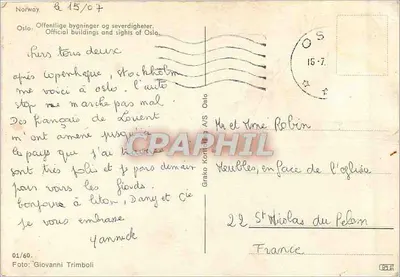 Norway
le 15/07
Oslo. Offentlige bygninger og severdigheter.
Official buildings and sights of Oslo.
Chers tous deux
après Copenhague, Stockholm
me voici à Oslo. l'auto
stop me marche pas mal.
Des français de Lorient
m'ont amené jusqu'ici
le pays que j'ai traversé
sont très jolis et je pars demain
pour voir les fjords.
Bonjour à Dany et Cie
je vous embrasse
Yannick
01/60.
Foto: Giovanni Trimboli
A/S Oslo
OS
15-7
CPAPHIL
Mr et Mme Robin
Meubles, en face de l'église
22 St Nicolas du Pelem
France